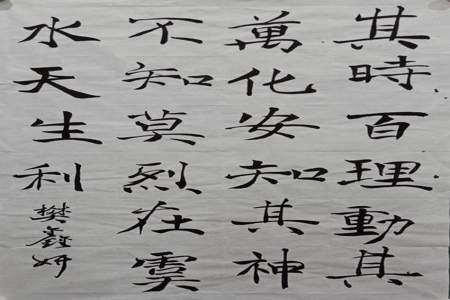 其時百理動其
萬化安知其神
不知莫烈在虞
水天生利
樊鑫妍